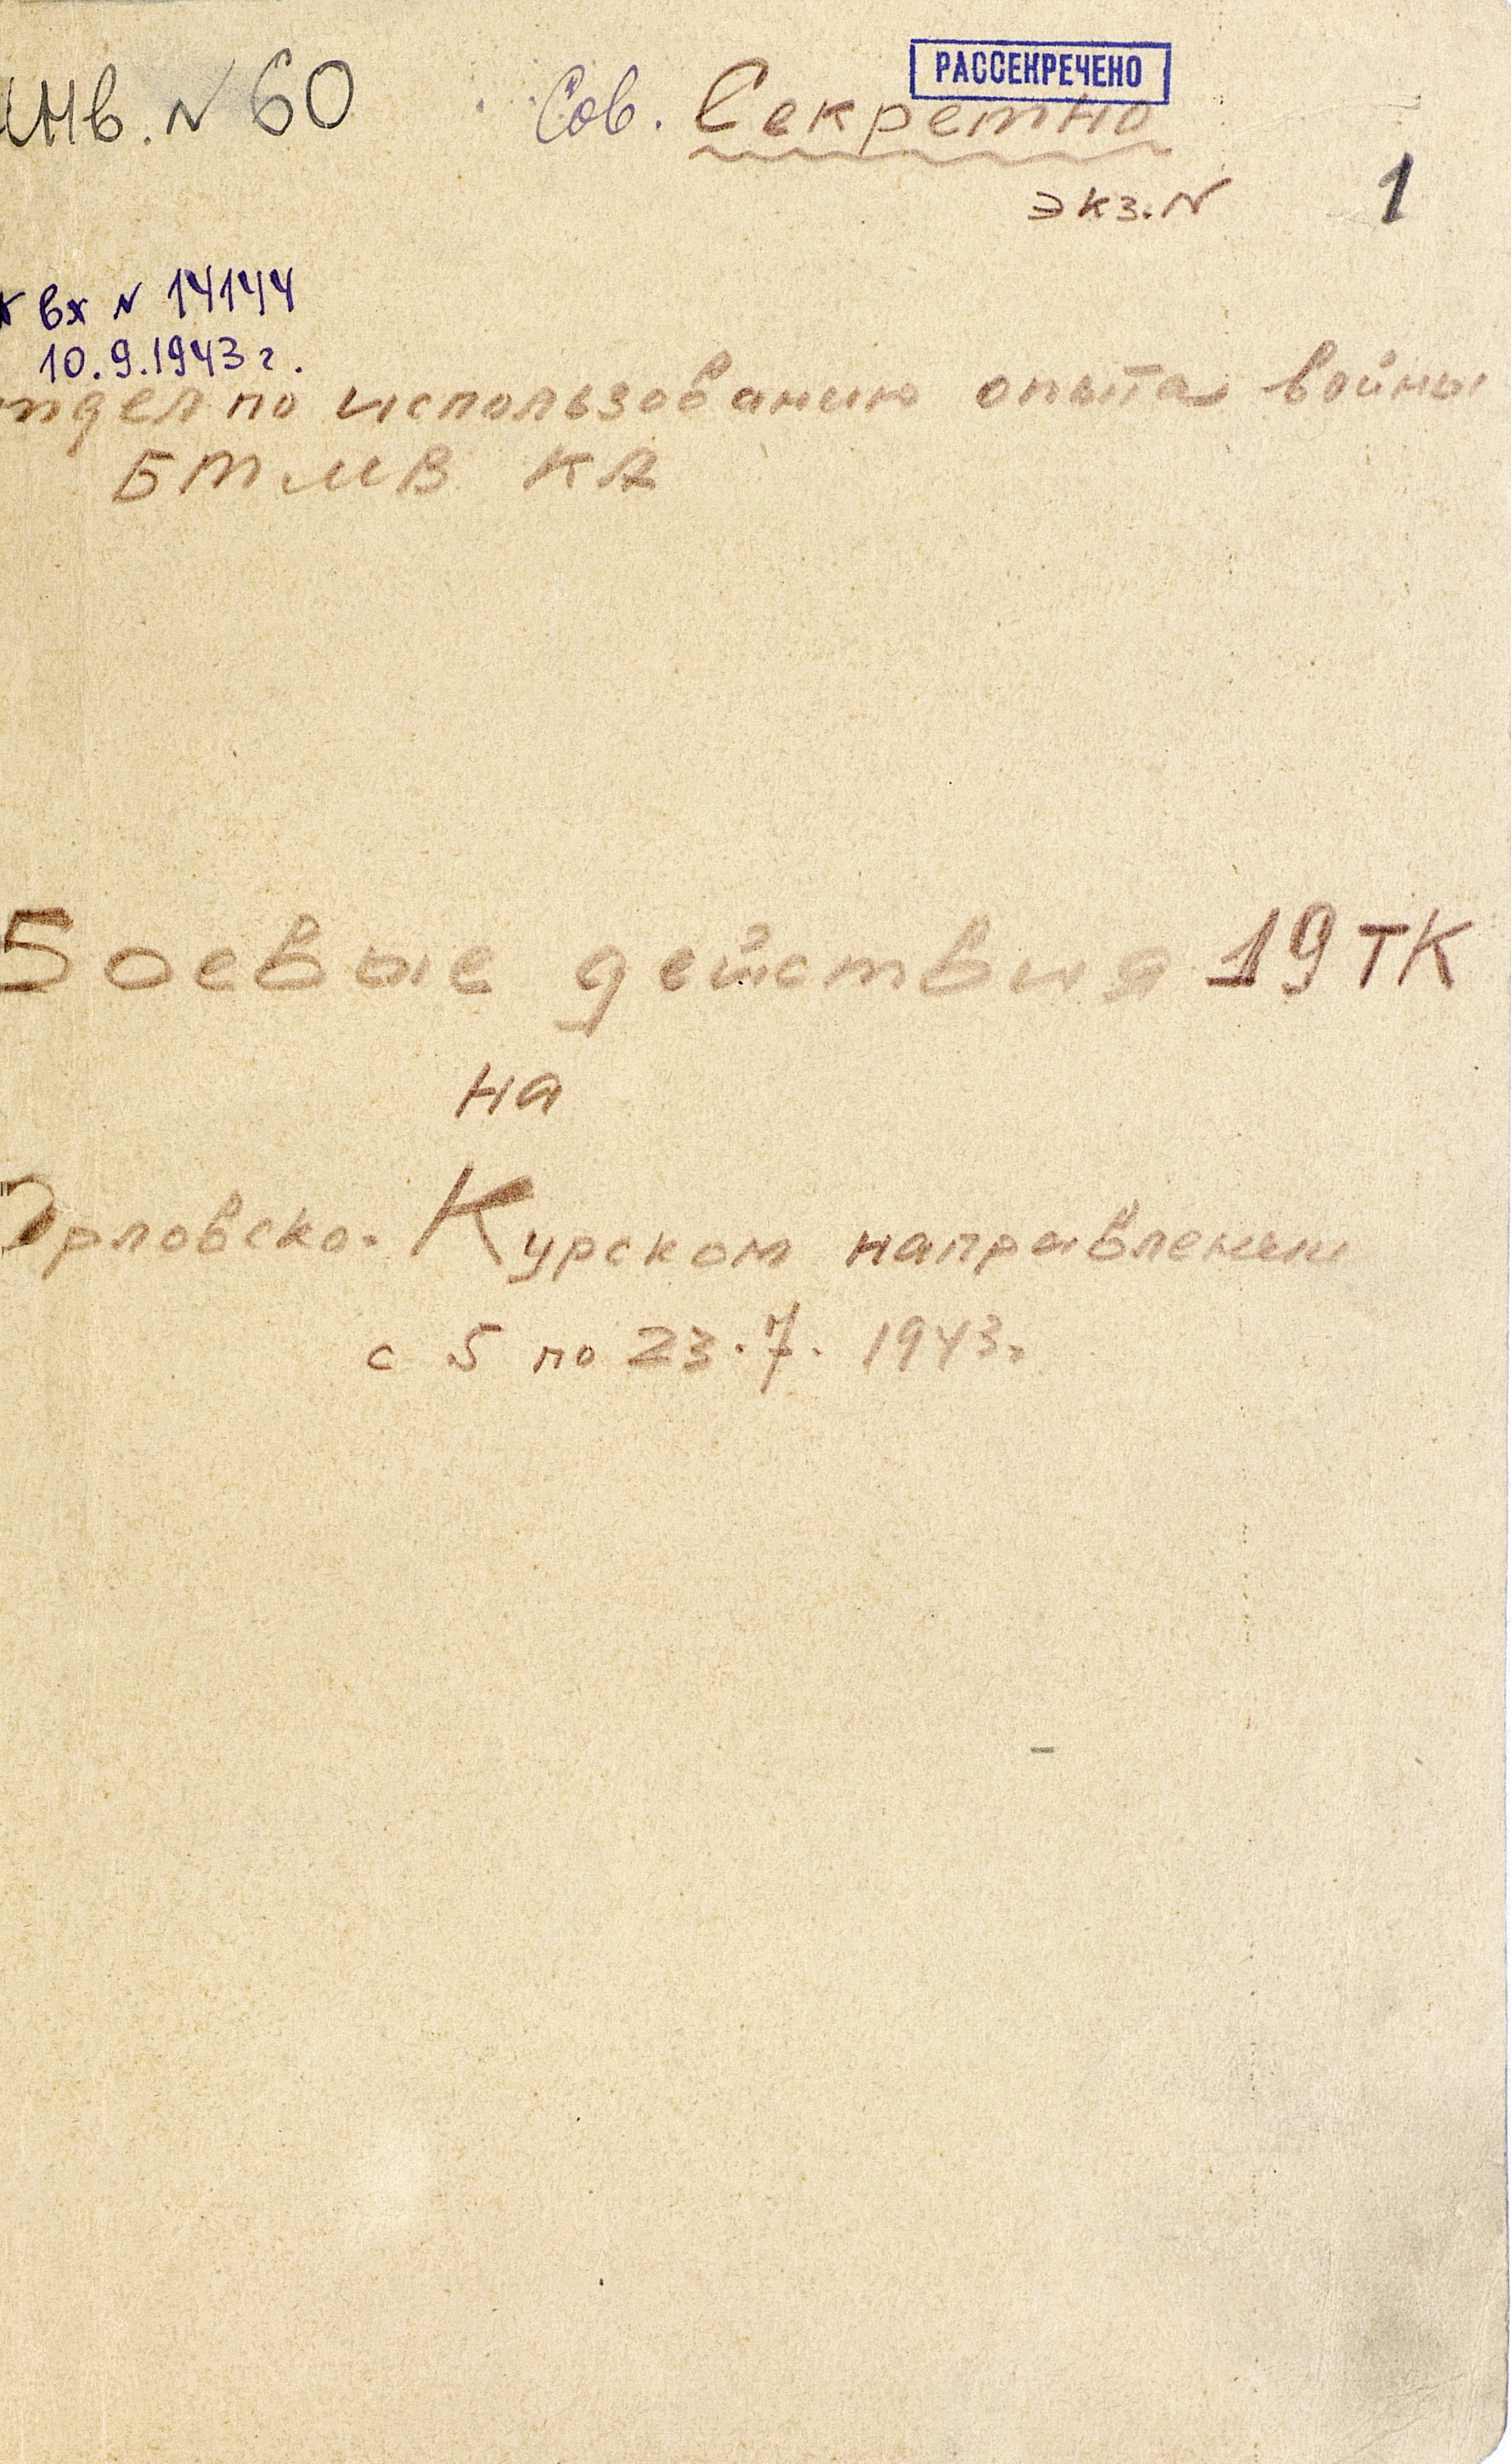 РАССЕКРЕЧЕНО
Инв. N 60 Сов. Секретно
экз. N 1
вх N 14144
10.9.1943 г.
тдел по использованию опыта войны
БТ и МВ КА
Боевые действия 19 ТК
на
Орловско-Курском направлении
с 5 по 23.7. 1943.